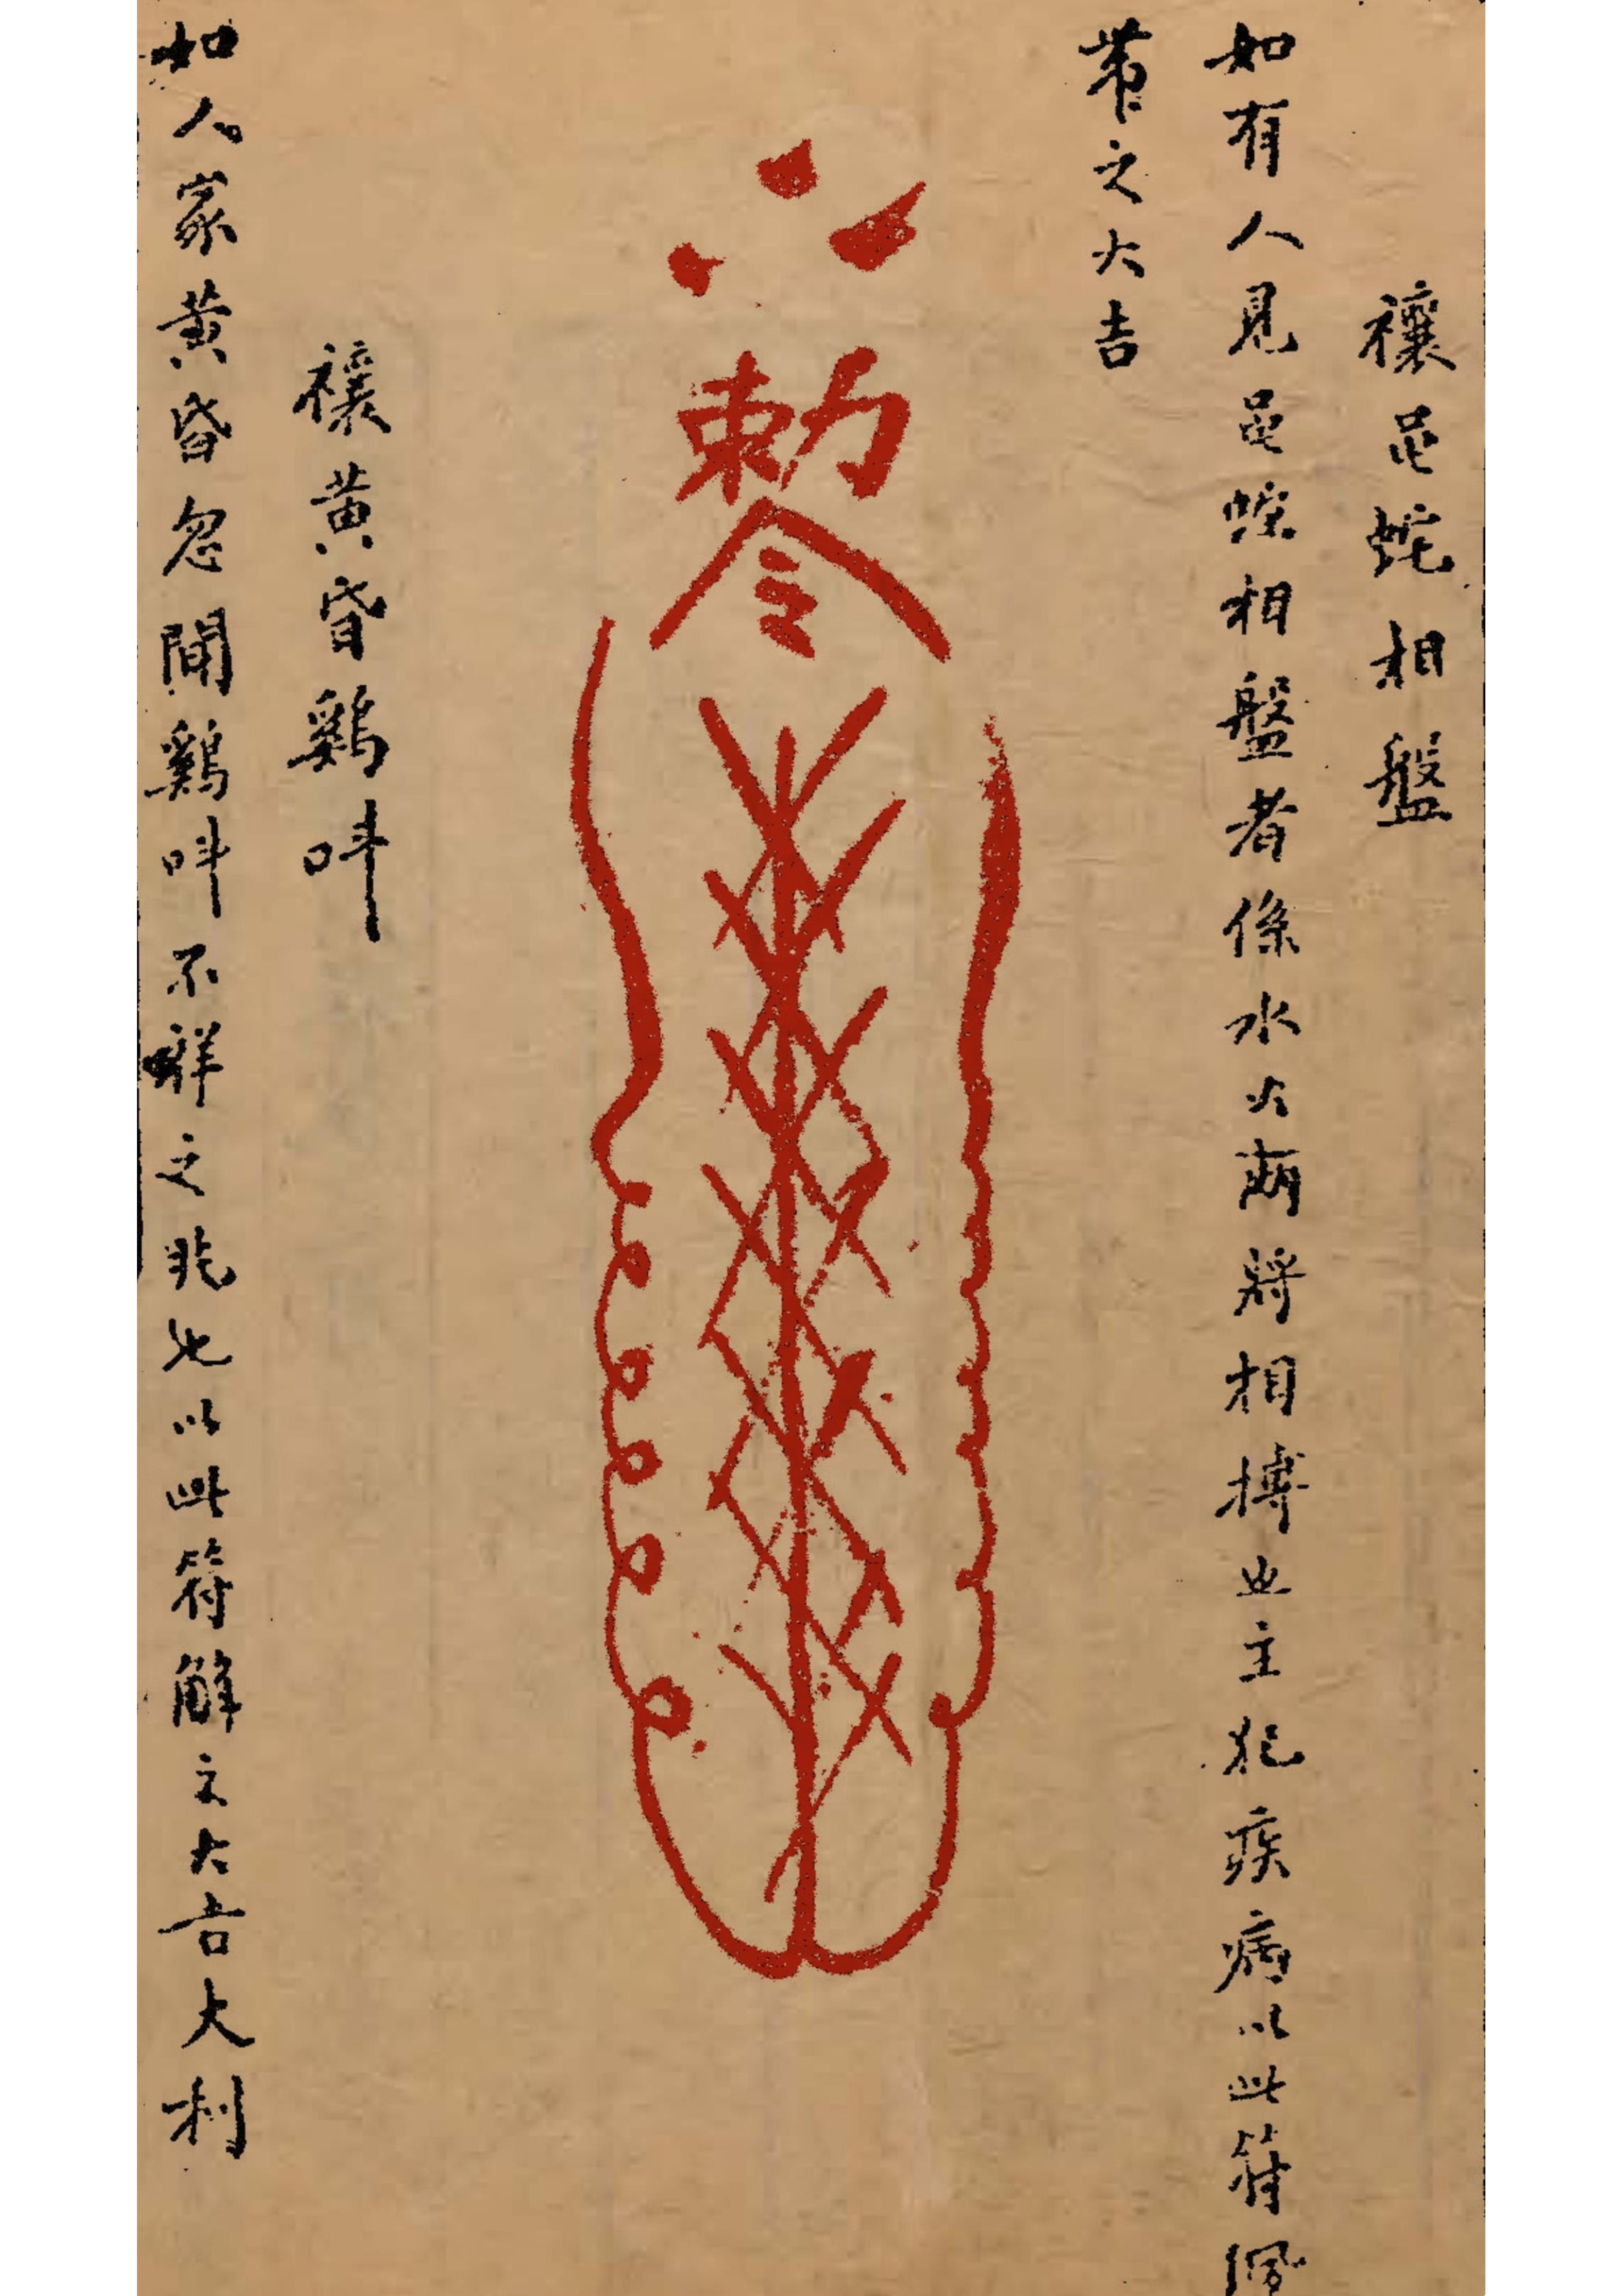 禳黾蛇相盤
如有人見黾蛇相盤者係水火両將相搏也主犯疾病以此符佩
帶之大吉
勅令
禳黄昏鷄呌
如人家黄昏忽聞鷄呌不祥之兆也以此符解之大吉大利